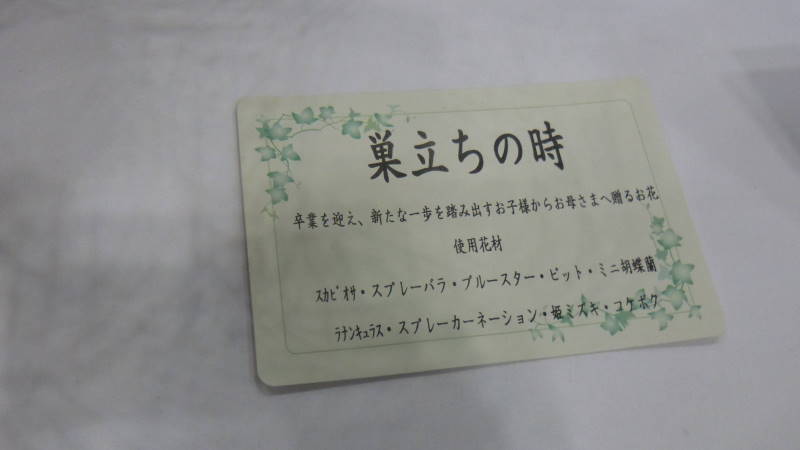 巣立ちの時
卒業を迎え、新たな一歩を踏み出すお子様からお母さまへ贈るお花
使用花材
ｽｶﾋﾞｵｻ・スプレーバラ・ブルースター・ビット・ミニ胡蝶蘭
ﾗﾅﾝｷｭﾗｽ・スプレーカーネーション・姫ミズキ・コケボク